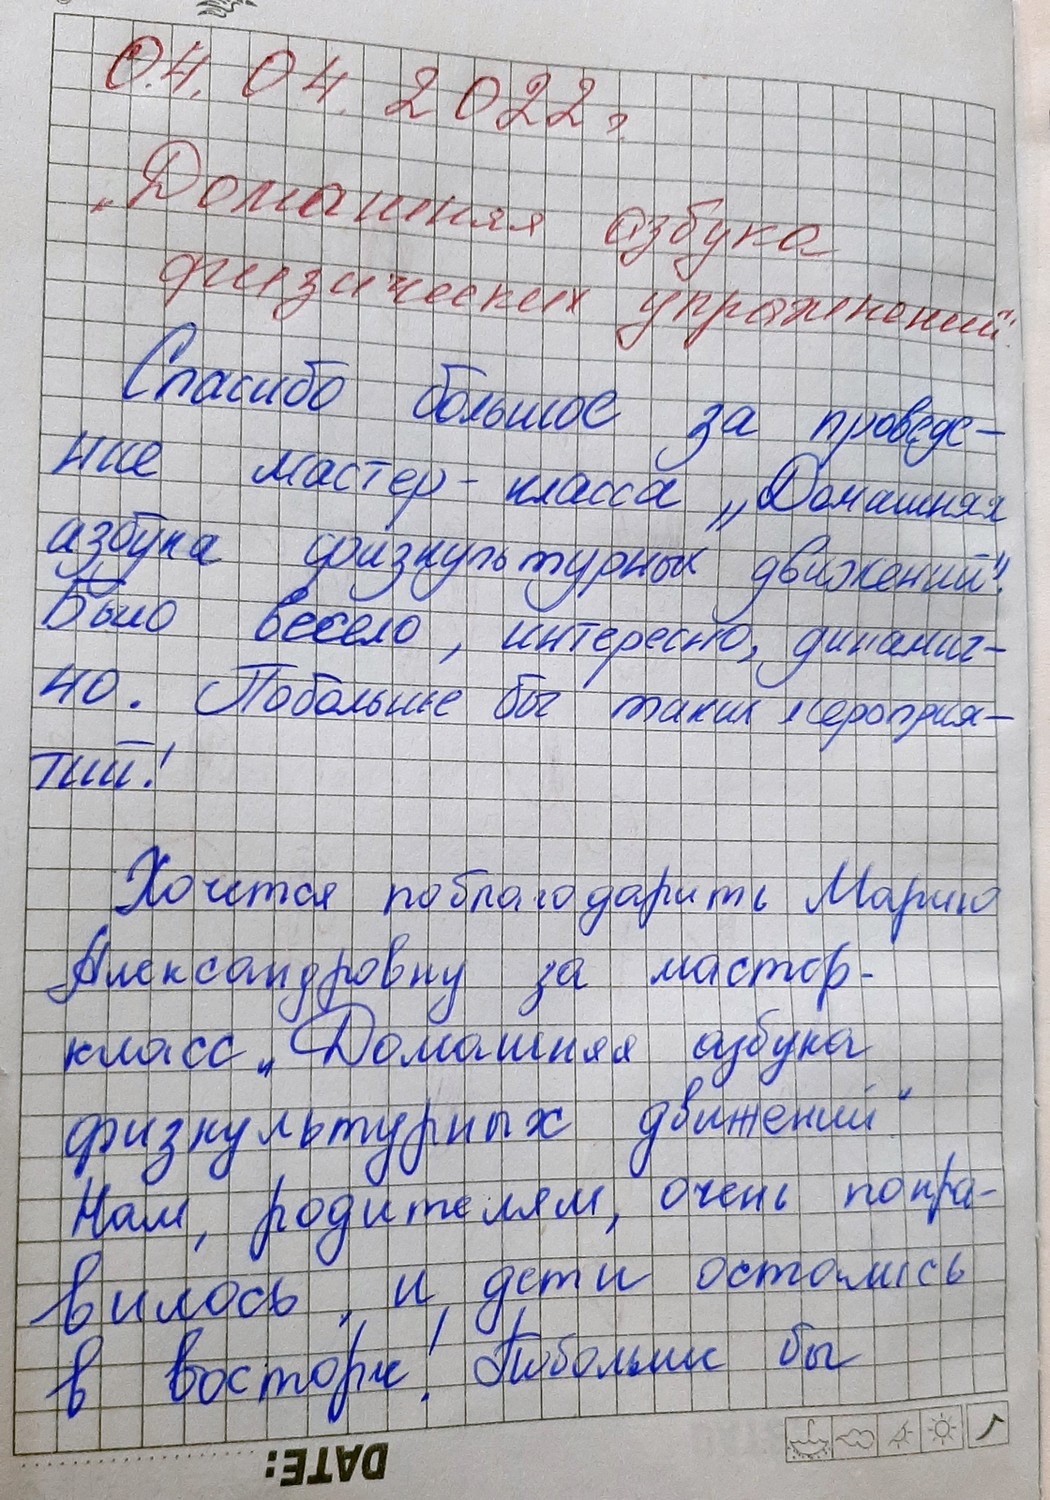 04. 04. 2022г.
„Домашняя азбука
физических упражнений“.
Спасибо большое за проведе-
ние мастер-класса „Домашняя
азбука физкультурных движений“!
Было весело, интересно, динамич-
но. Побольше бы таких мероприя-
тий!
Хочется поблагодарить Марию
Александровну за мастер-
класс „Домашняя азбука
физкультурных движений“
Нам, родителям, очень понра-
вилось, и дети остались
в восторге! Побольше бы
DATE: